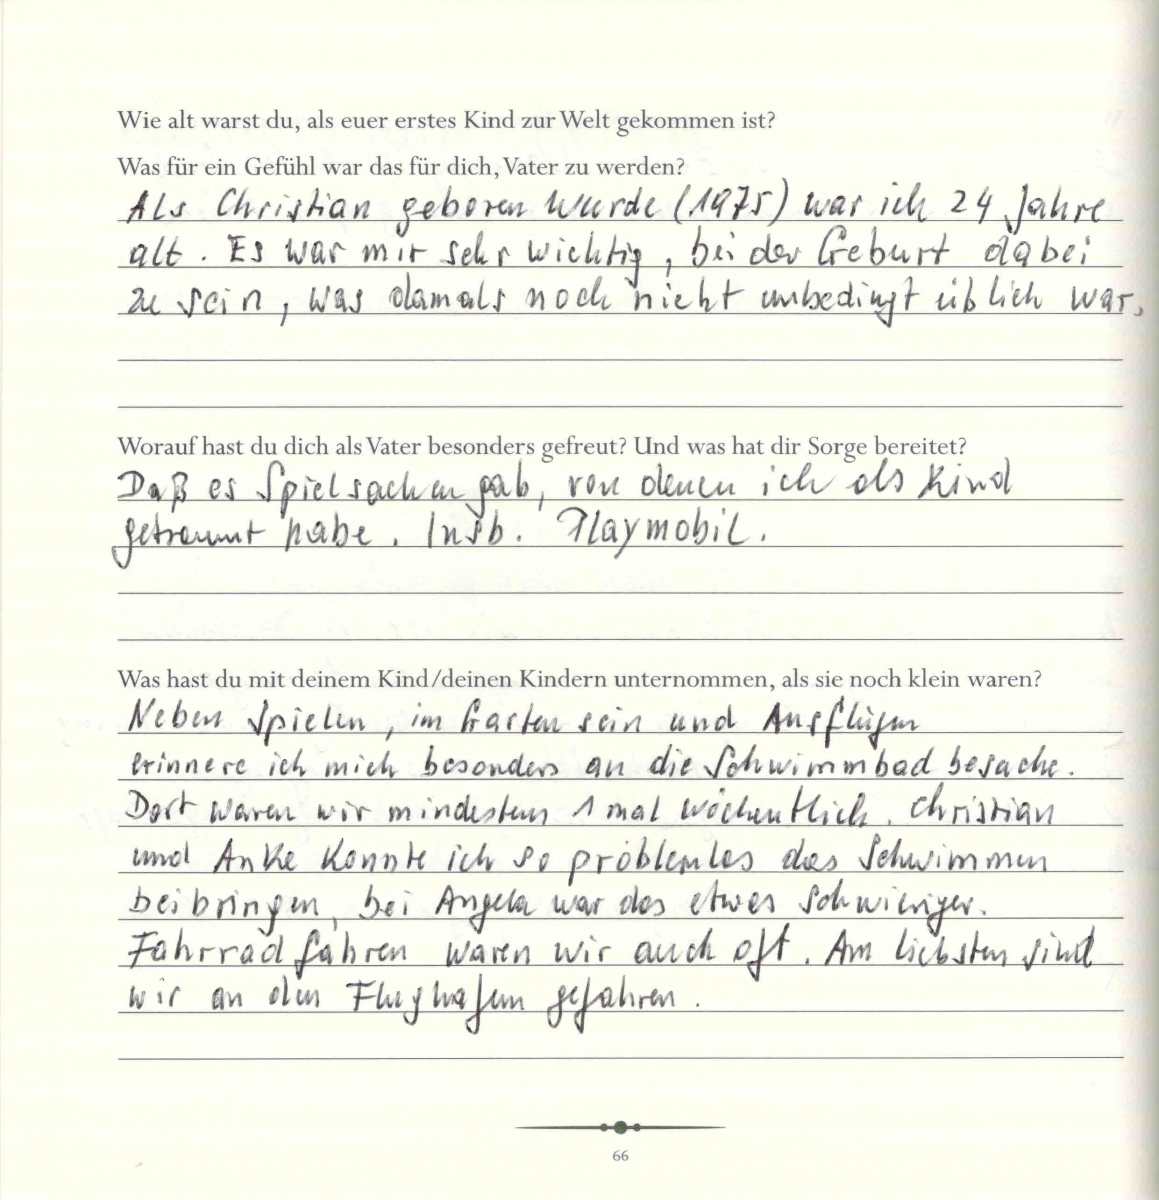 Wie alt warst du, als euer erstes Kind zur Welt gekommen ist?
Was für ein Gefühl war das für dich, Vater zu werden?
Als Christian geboren wurde (1975) war ich 24 Jahre
alt. Es war mir sehr wichtig, bei der Geburt dabei
zu sein, was damals noch nicht unbedingt üblich war.
Worauf hast du dich als Vater besonders gefreut? Und was hat dir Sorge bereitet?
Daß es Spielsachen gab, von denen ich als Kind
getraumt habe. Insb. Playmobil.
Was hast du mit deinem Kind/deinen Kindern unternommen, als sie noch klein waren?
Neben Spielen, im Garten sein und Ausflügen
erinnere ich mich besonders an die Schwimmbad besuche.
Dort waren wir mindestens 1 mal wöchentlich. Christian
und Anke konnte ich so problemlos das Schwimmen
beibringen, bei Angela war das etwas schwieriger.
Fahrrad fahren waren wir auch oft. Am liebsten sind
wir an den Flughafen gefahren.
66